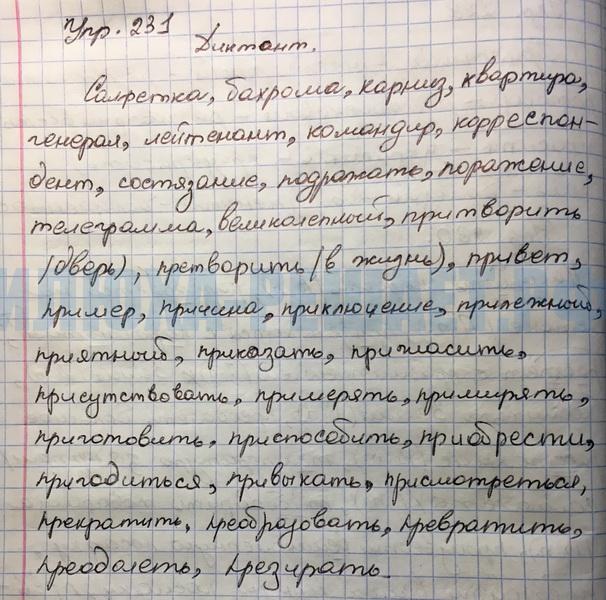 Упр. 231
Диктант.
Салфетка, бахрома, карниз, квартира,
генерал, лейтенант, командир, корреспон-
дент, состязание, подражать, поражение,
телеграмма, великолепный, притворить
(дверь), претворить (в жизнь), привет,
пример, причина, приключение, прилежный,
приятный, приказать, пригласить,
присутствовать, примерять, примирять,
приготовить, приспособить, приобрести,
пригодиться, привыкать, присмотреться,
прекратить, преобразовать, превратить,
преодолеть, презирать.